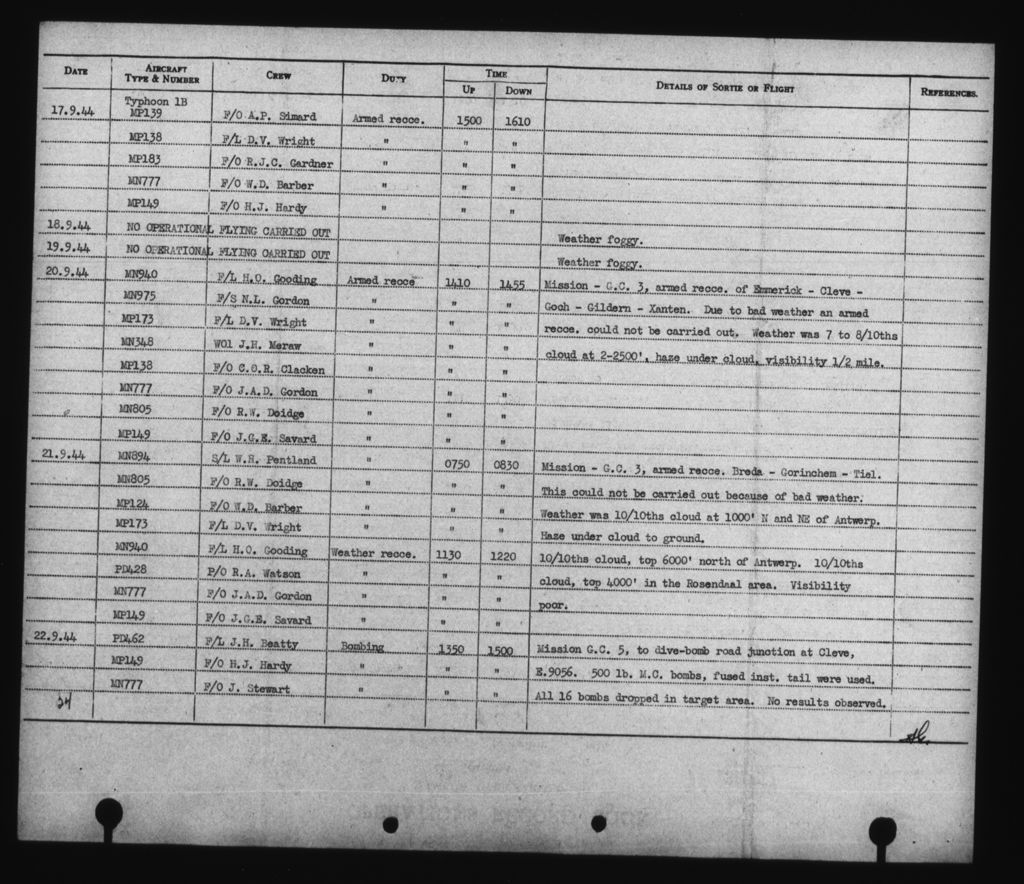 DATE AIRCRAFT TYPE & NUMBER CREW DUTY TIME UP DOWN DETAILS OF SORTIE OR FLIGHT REFERENCES.
Typhoon 1B
17.9.44 MP139 F/O A.P. Simard Armed recce. 1500 1610
MP138 F/L D.V. Wright " " "
MP183 F/O R.J.C. Gardner " " "
MN777 F/O W.D. Barber " " "
MP149 F/O H.J. Hardy " " "
18.9.44 NO OPERATIONAL FLYING CARRIED OUT Weather foggy.
19.9.44 NO OPERATIONAL FLYING CARRIED OUT Weather foggy.
20.9.44 MN940 F/L H.O. Gooding Armed recce 1410 1455 Mission - G.C. 3, armed recce. of Emmerick - Cleve -
MN975 F/S N.L. Gordon " " " Goch - Gildern - Xanten. Due to bad weather an armed
MP173 F/L D.V. Wright " " " recce. could not be carried out. Weather was 7 to 8/10ths
MN348 WO1 J.H. Meraw " " " cloud at 2-2500', haze under cloud, visibility 1/2 mile.
MP138 F/O C.O.R. Clacken " " "
MN777 F/O J.A.D. Gordon " " "
MN805 F/O R.W. Doidge " " "
MP149 F/O J.G.E. Savard " " "
21.9.44 MN894 S/L W.H. Pentland " 0750 0830 Mission - G.C. 3, armed recce. Breda - Gorinchem - Tiel.
MN805 F/O R.W. Doidge " " " This could not be carried out because of bad weather.
MP124 F/O W.D. Barber " " " Weather was 10/10ths cloud at 1000' N and NE of Antwerp.
MP173 F/L D.V. Wright " " " Haze under cloud to ground.
MN940 F/L H.O. Gooding Weather recce. 1130 1220 10/10ths cloud, top 6000' north of Antwerp. 10/10ths
PD428 P/O R.A. Watson " " " cloud, top 4000' in the Rosendaal area. Visibility
MN777 F/O J.A.D. Gordon " " " poor.
MP149 F/O J.G.E. Savard " " "
22.9.44 PD462 F/L J.H. Beatty Bombing 1350 1500 Mission G.C. 5, to dive-bomb road junction at Cleve,
MP149 F/O H.J. Hardy " " " E.9056. 500 lb. M.C. bombs, fused inst. tail were used.
MN777 F/O J. Stewart " " " All 16 bombs dropped in target area. No results observed.